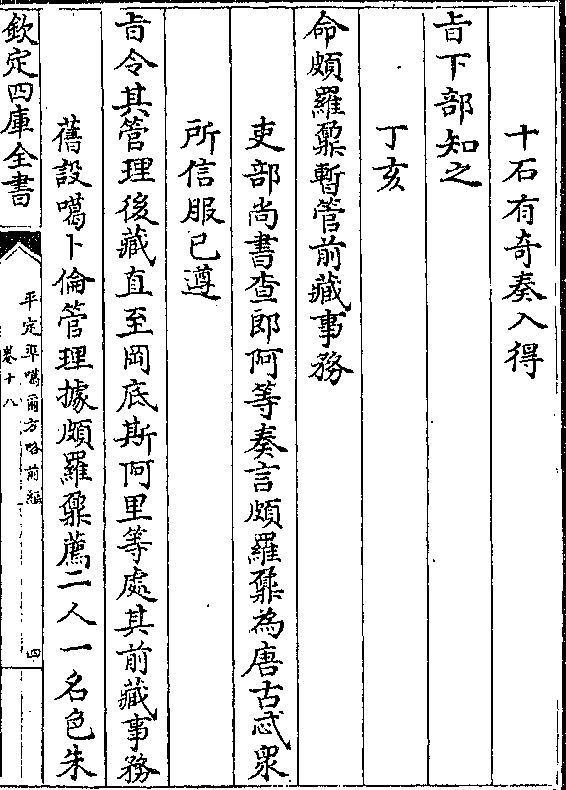 十石有奇奏入得
旨下部知之
丁亥
命頗羅鼐暫管前藏事務
吏部尚書查郎阿等奏言頗羅鼐為唐古忒衆
所信服已遵
旨令其管理後藏直至岡底斯阿里等處其前藏事務
舊設噶卜倫管理據頗羅鼐薦二人一名色朱
欽定四庫全書
平定準噶爾方略前編
卷十八
四